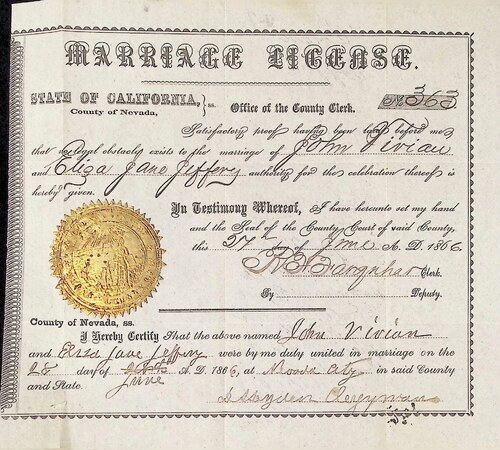 MARRIAGE LICENSE.
STATE OF CALIFORNIA, } ss. Office of the County Clerk. No. 363
County of Nevada,
Satisfactory proof having been before me
that no legal obstacly exists to the marriage of John Vivian
and Eliza Jane Jeffery authority for the celebration thereof is
hereby given.
In Testimony Whereof, I have hereunto set my hand
and the Seal of the County Court of said County,
this 27 day of June A. D. 1866
Farquhar Clerk.
By Deputy.
County of Nevada, ss.
I Hereby Certify That the above named John Vivian
and Eliza Jane Jeffery were by me duly united in marriage on the
28 day of A. D. 1866, at Nevada City in said County
and State. June
Clergyman